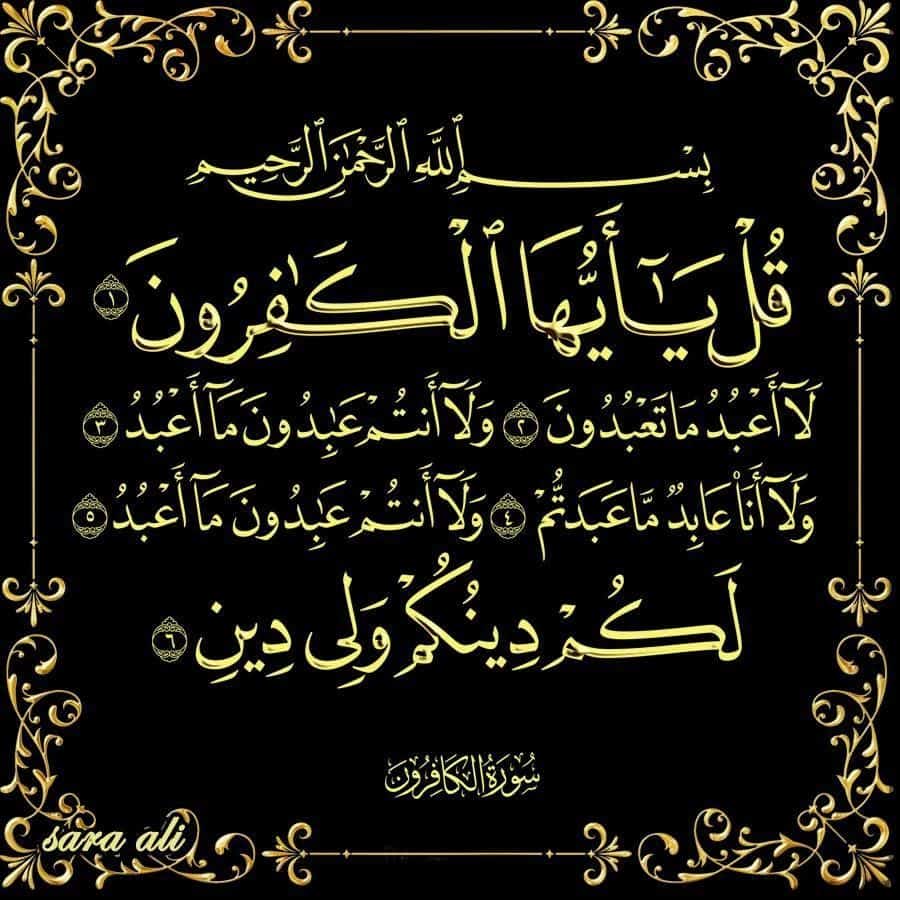 بِسْمِ ٱللَّهِ ٱلرَّحْمَٰنِ ٱلرَّحِيمِ
قُلْ يَٰٓأَيُّهَا ٱلْكَٰفِرُونَ ١
لَآ أَعْبُدُ مَا تَعْبُدُونَ ٢ وَلَآ أَنتُمْ عَٰبِدُونَ مَآ أَعْبُدُ ٣
وَلَآ أَنَا۠ عَابِدٌ مَّا عَبَدتُّمْ ٤ وَلَآ أَنتُمْ عَٰبِدُونَ مَآ أَعْبُدُ ٥
لَكُمْ دِينُكُمْ وَلِىَ دِينِ ٦
سُورَةُ الكَافِرُونَ
sara ali